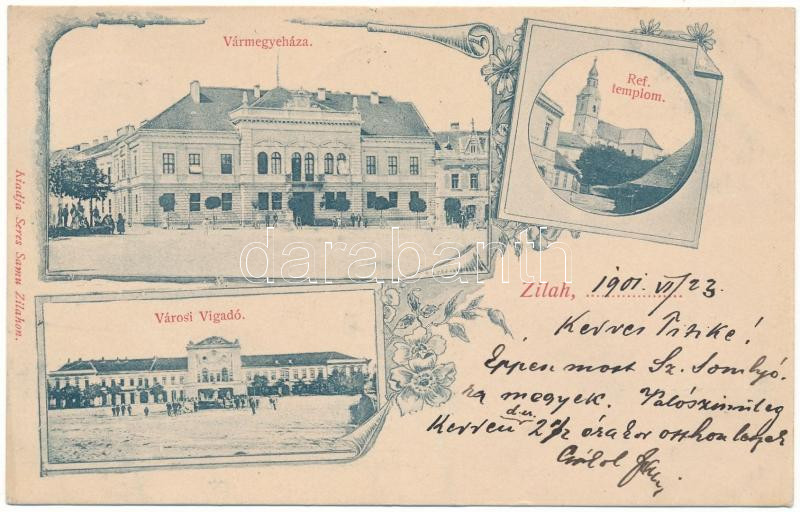 Vármegyeháza.
Ref.
templom.
Kiadja Seres Samu Zilahon.
darabanth
Városi Vigadó.
Zilah, 1901. VI/23
Kedves Titike!
Éppen most Sz. Somlyó-
ra megyek. Valószinüleg
Kedden d.u. 2 1/2 órakor otthon leszek
Csókol